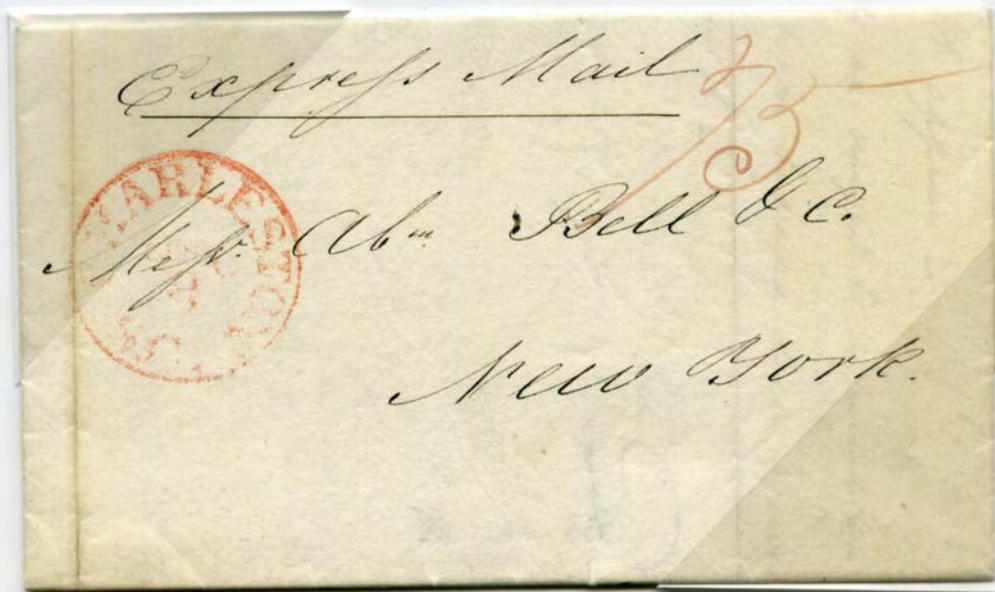 Express Mail
75
CHARLESTON
Messrs. Abm. Bell & C.
New York.